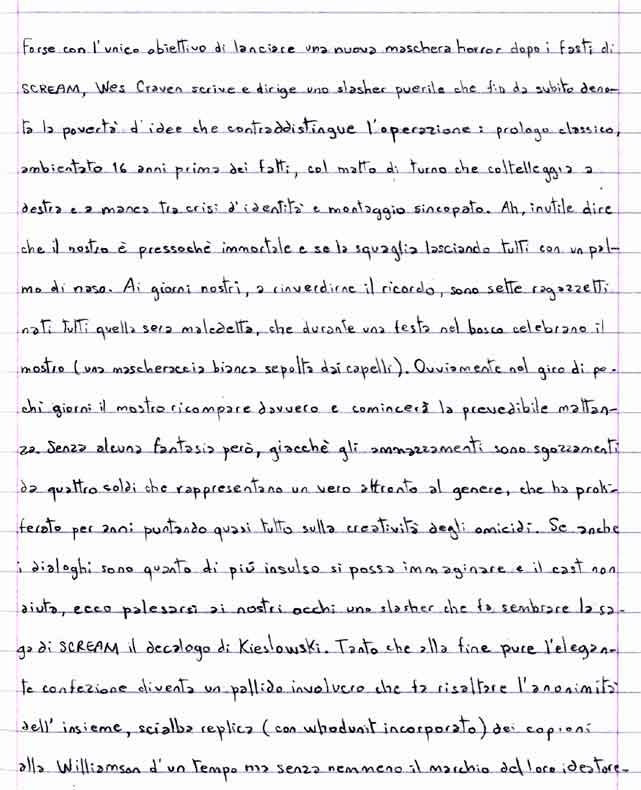 Forse con l'unico obiettivo di lanciare una nuova maschera horror dopo i fasti di
SCREAM, Wes Craven scrive e dirige uno slasher puerile che fin da subito deno-
ta la povertà d'idee che contraddistingue l'operazione: prologo classico,
ambientato 16 anni prima dei fatti, col matto di turno che coltelleggia a
destra e a manca tra crisi d'identità e montaggio sincopato. Ah, inutile dire
che il nostro è pressochè immortale e se la squaglia lasciando tutti con un pal-
mo di naso. Ai giorni nostri, a rinverdirne il ricordo, sono sette ragazzetti
nati tutti quella sera maledetta, che durante una festa nel bosco celebrano il
mostro (una mascheraccia bianca sepolta dai capelli). Ovviamente nel giro di po-
chi giorni il mostro ricompare davvero e comincerà la prevedibile mattan-
za. Senza alcuna fantasia però, giacchè gli ammazzamenti sono sgozzamenti
da quattro soldi che rappresentano un vero affronto al genere, che ha proli-
ferato per anni puntando quasi tutto sulla creatività degli omicidi. Se anche
i dialoghi sono quanto di più insulso si possa immaginare e il cast non
aiuta, ecco palesarsi ai nostri occhi uno slasher che fa sembrare la sa-
ga di SCREAM il decalogo di Kieslowski. Tanto che alla fine pure l'elegan-
te confezione diventa un pallido involucro che fa risaltare l'anonimità
dell'insieme, scialba replica (con whodunit incorporato) dei copioni
alla Williamson d'un tempo ma senza nemmeno il marchio del loro ideatore.